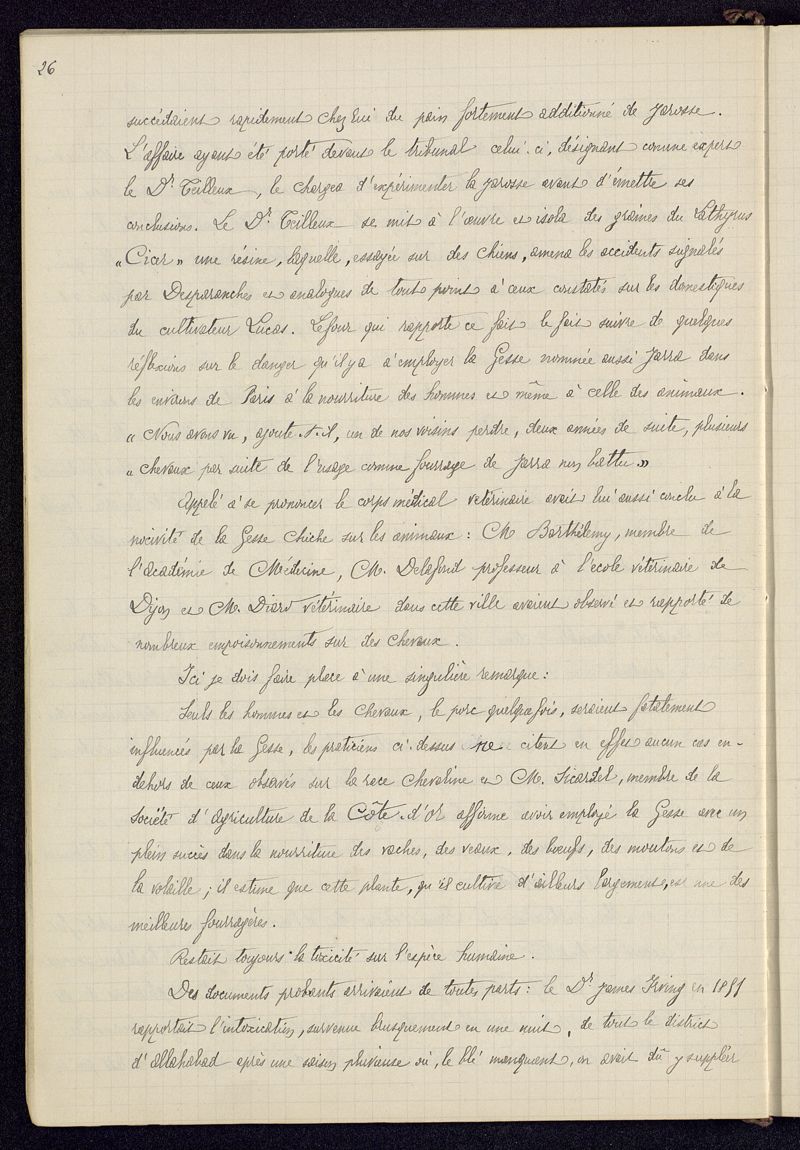 26
succédaient rapidement chez lui du pain fortement additionné de Jarosse.
L'affaire ayant été porté devant le tribunal celui-ci, désignant comme expert
le Dr Teilleux, le chargea d'expérimenter la jarosse avant d'émettre ses
conclusions. Le Dr Teilleux se mit à l'œuvre et isola des graines du Lathyrus
"Cicer" une résine, laquelle, essayée sur des chiens, amena les accidents signalés
par Desparanches et analogues de tout point à ceux constatés sur les domestiques
du cultivateur Lucas. Lefour qui rapporte ce fait le fait suivre de quelques
réflexions sur le danger qu'il y a à employer la Gesse nommée aussi Jarra dans
les environs de Paris à la nourriture des hommes et même à celle des animaux.
« Nous avons vu, ajoute-t-il, un de nos voisins perdre, deux années de suite, plusieurs
« chevaux par suite de l'usage comme fourrage de Jarra non battu »
Appelé à se prononcer le corps médical vétérinaire avait lui aussi conclu à la
nocivité de la Gesse Chiche sur les animaux : M Barthélemy, membre de
l'académie de Médecine, M. Delafond professeur à l'école vétérinaire de
Dijon et M. Diard vétérinaire dans cette ville avaient observé et rapporté de
nombreux empoisonnements sur des chevaux.
Ici je dois faire place à une singulière remarque :
Seuls les hommes et les chevaux, le porc quelquefois, seraient fatalement
influencés par la Gesse, les praticiens ci-dessus ne citent en effet aucun cas en-
dehors de ceux observés sur la race chevaline et M. Sicardet, membre de la
Société d'Agriculture de la Côte-d'Or affirme avoir employé la Gesse avec un
plein succès dans la nourriture des vaches, des veaux, des bœufs, des moutons et de
la volaille ; il estime que cette plante, qu'il cultive d'ailleurs largement, est une des
meilleures fourragères.
Restait toujours la toxicité sur l'espèce humaine.
Des documents probants arrivaient de toutes parts : le Dr James Irving en
rapportait l'intoxication, survenue brusquement en une nuit, de tout le district
d'Allahabad après une saison pluvieuse où, le blé manquant, on avait dû y suppléer